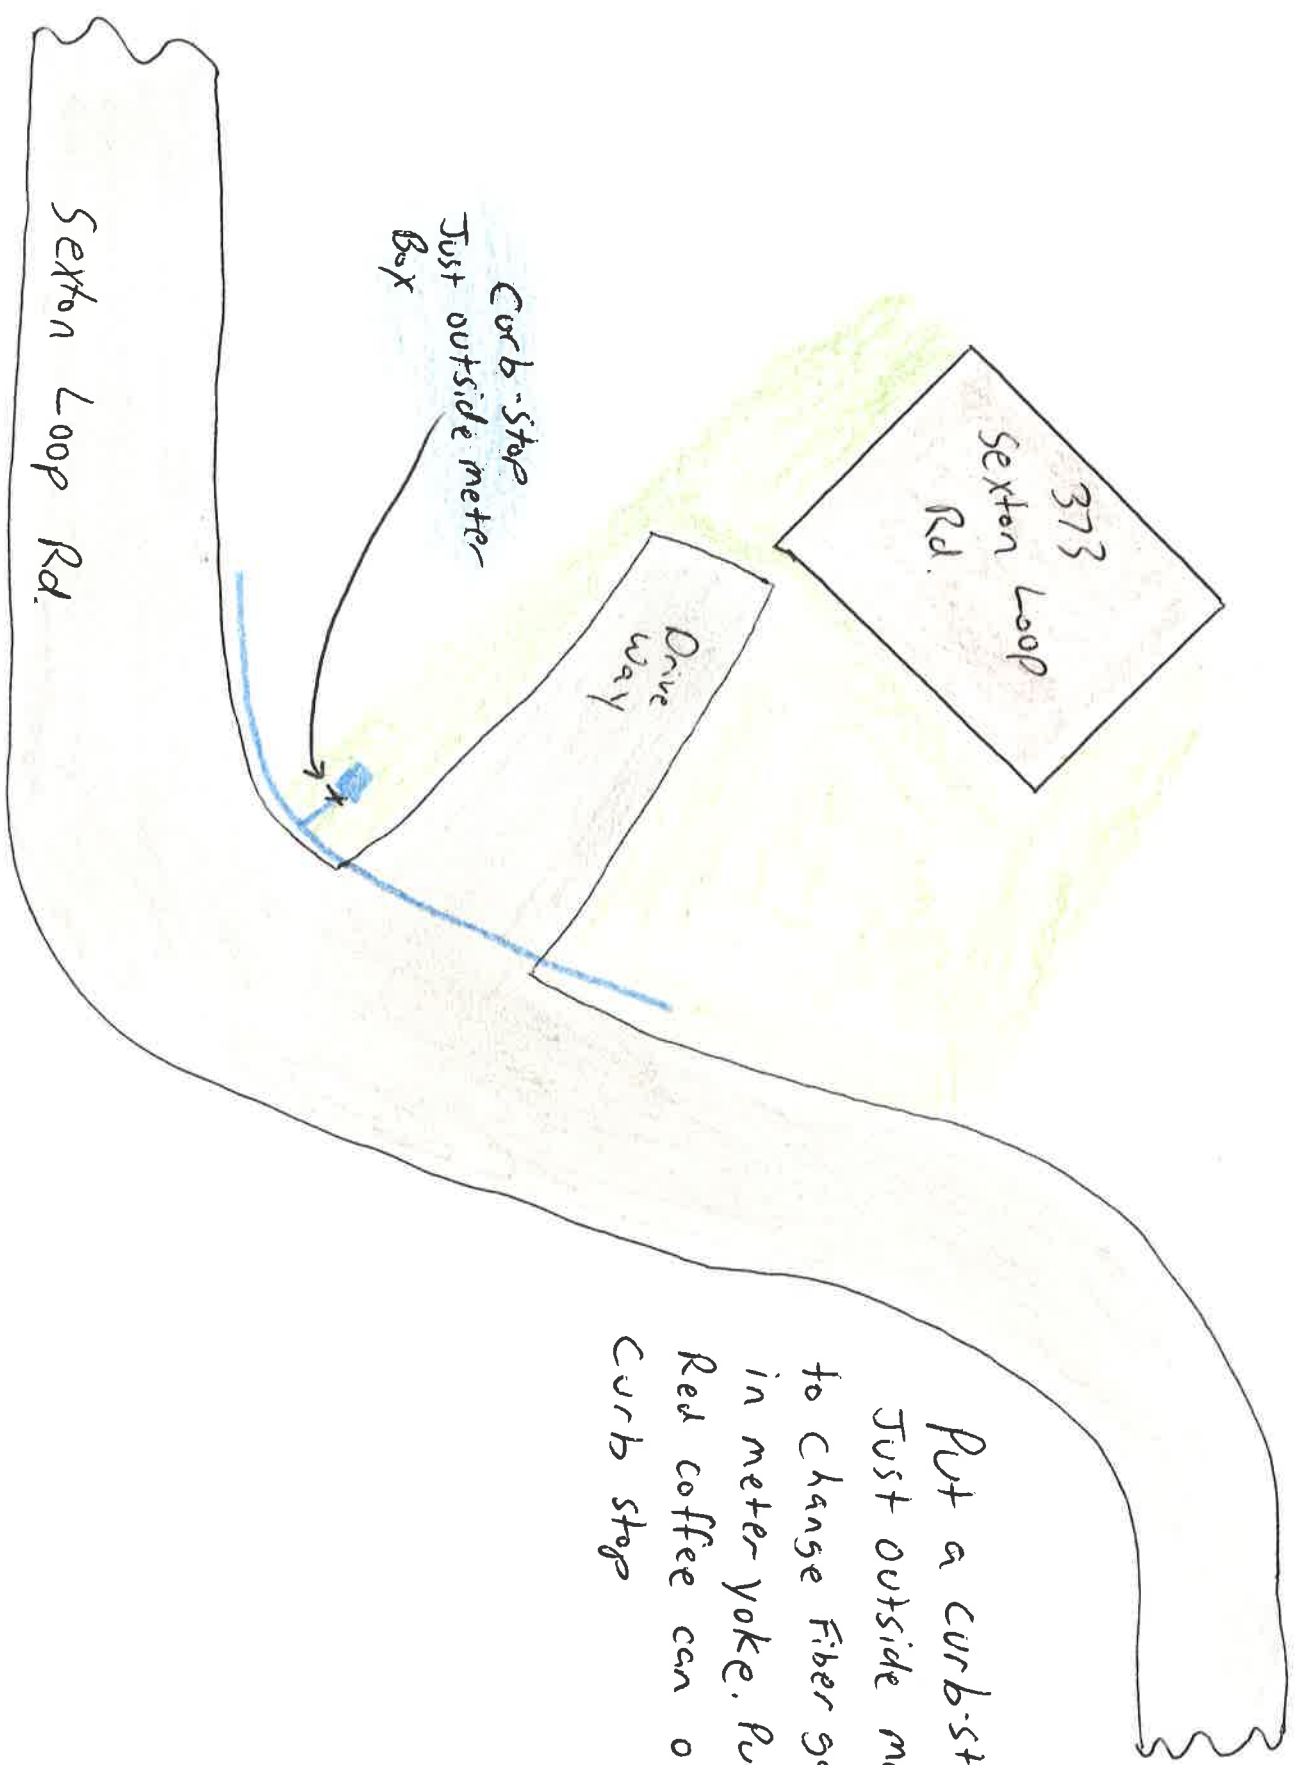 373
Sexton Loop
Rd.
Drive
Way
Curb-stop
Just outside meter
Box
Sexton Loop Rd.
Put a curb-st
Just outside m
to change Fiber ga
in meter yoke. Pu
Red coffee can o
Curb stop